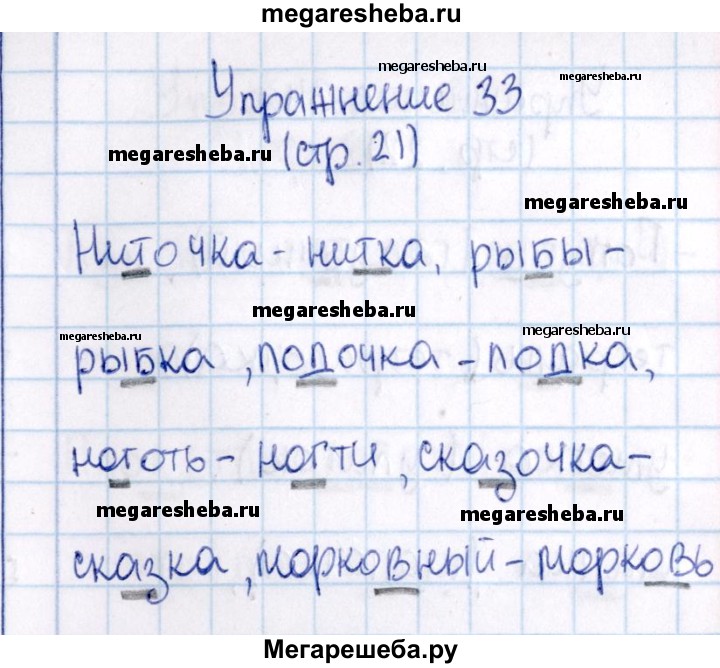 megaresheba.ru
megaresheba.ru
megaresheba.ru
Упражнение 33
megaresheba.ru
(стр. 21)
megaresheba.ru
Ниточка - нитка, рыбы -
megaresheba.ru
megaresheba.ru
megaresheba.ru
рыбка, лодочка - лодка,
ноготь - ногти, сказочка -
megaresheba.ru
megaresheba.ru
сказка, морковный - морковь
Мегарешеба.ру